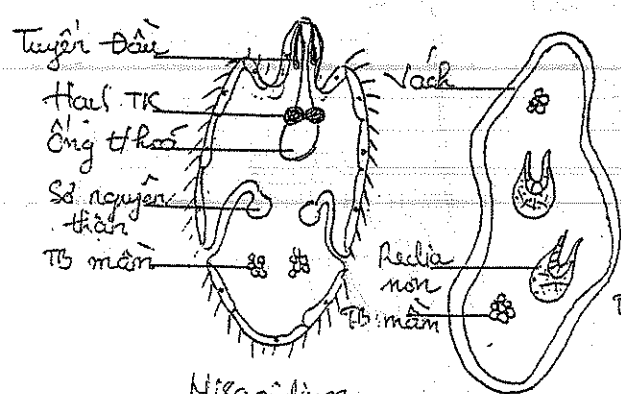 Tuyến Đầu
Hạch TK
Ống t/hoá
Sơ nguyên
thận
TB mầm
Vách
Redia
non
TB mầm